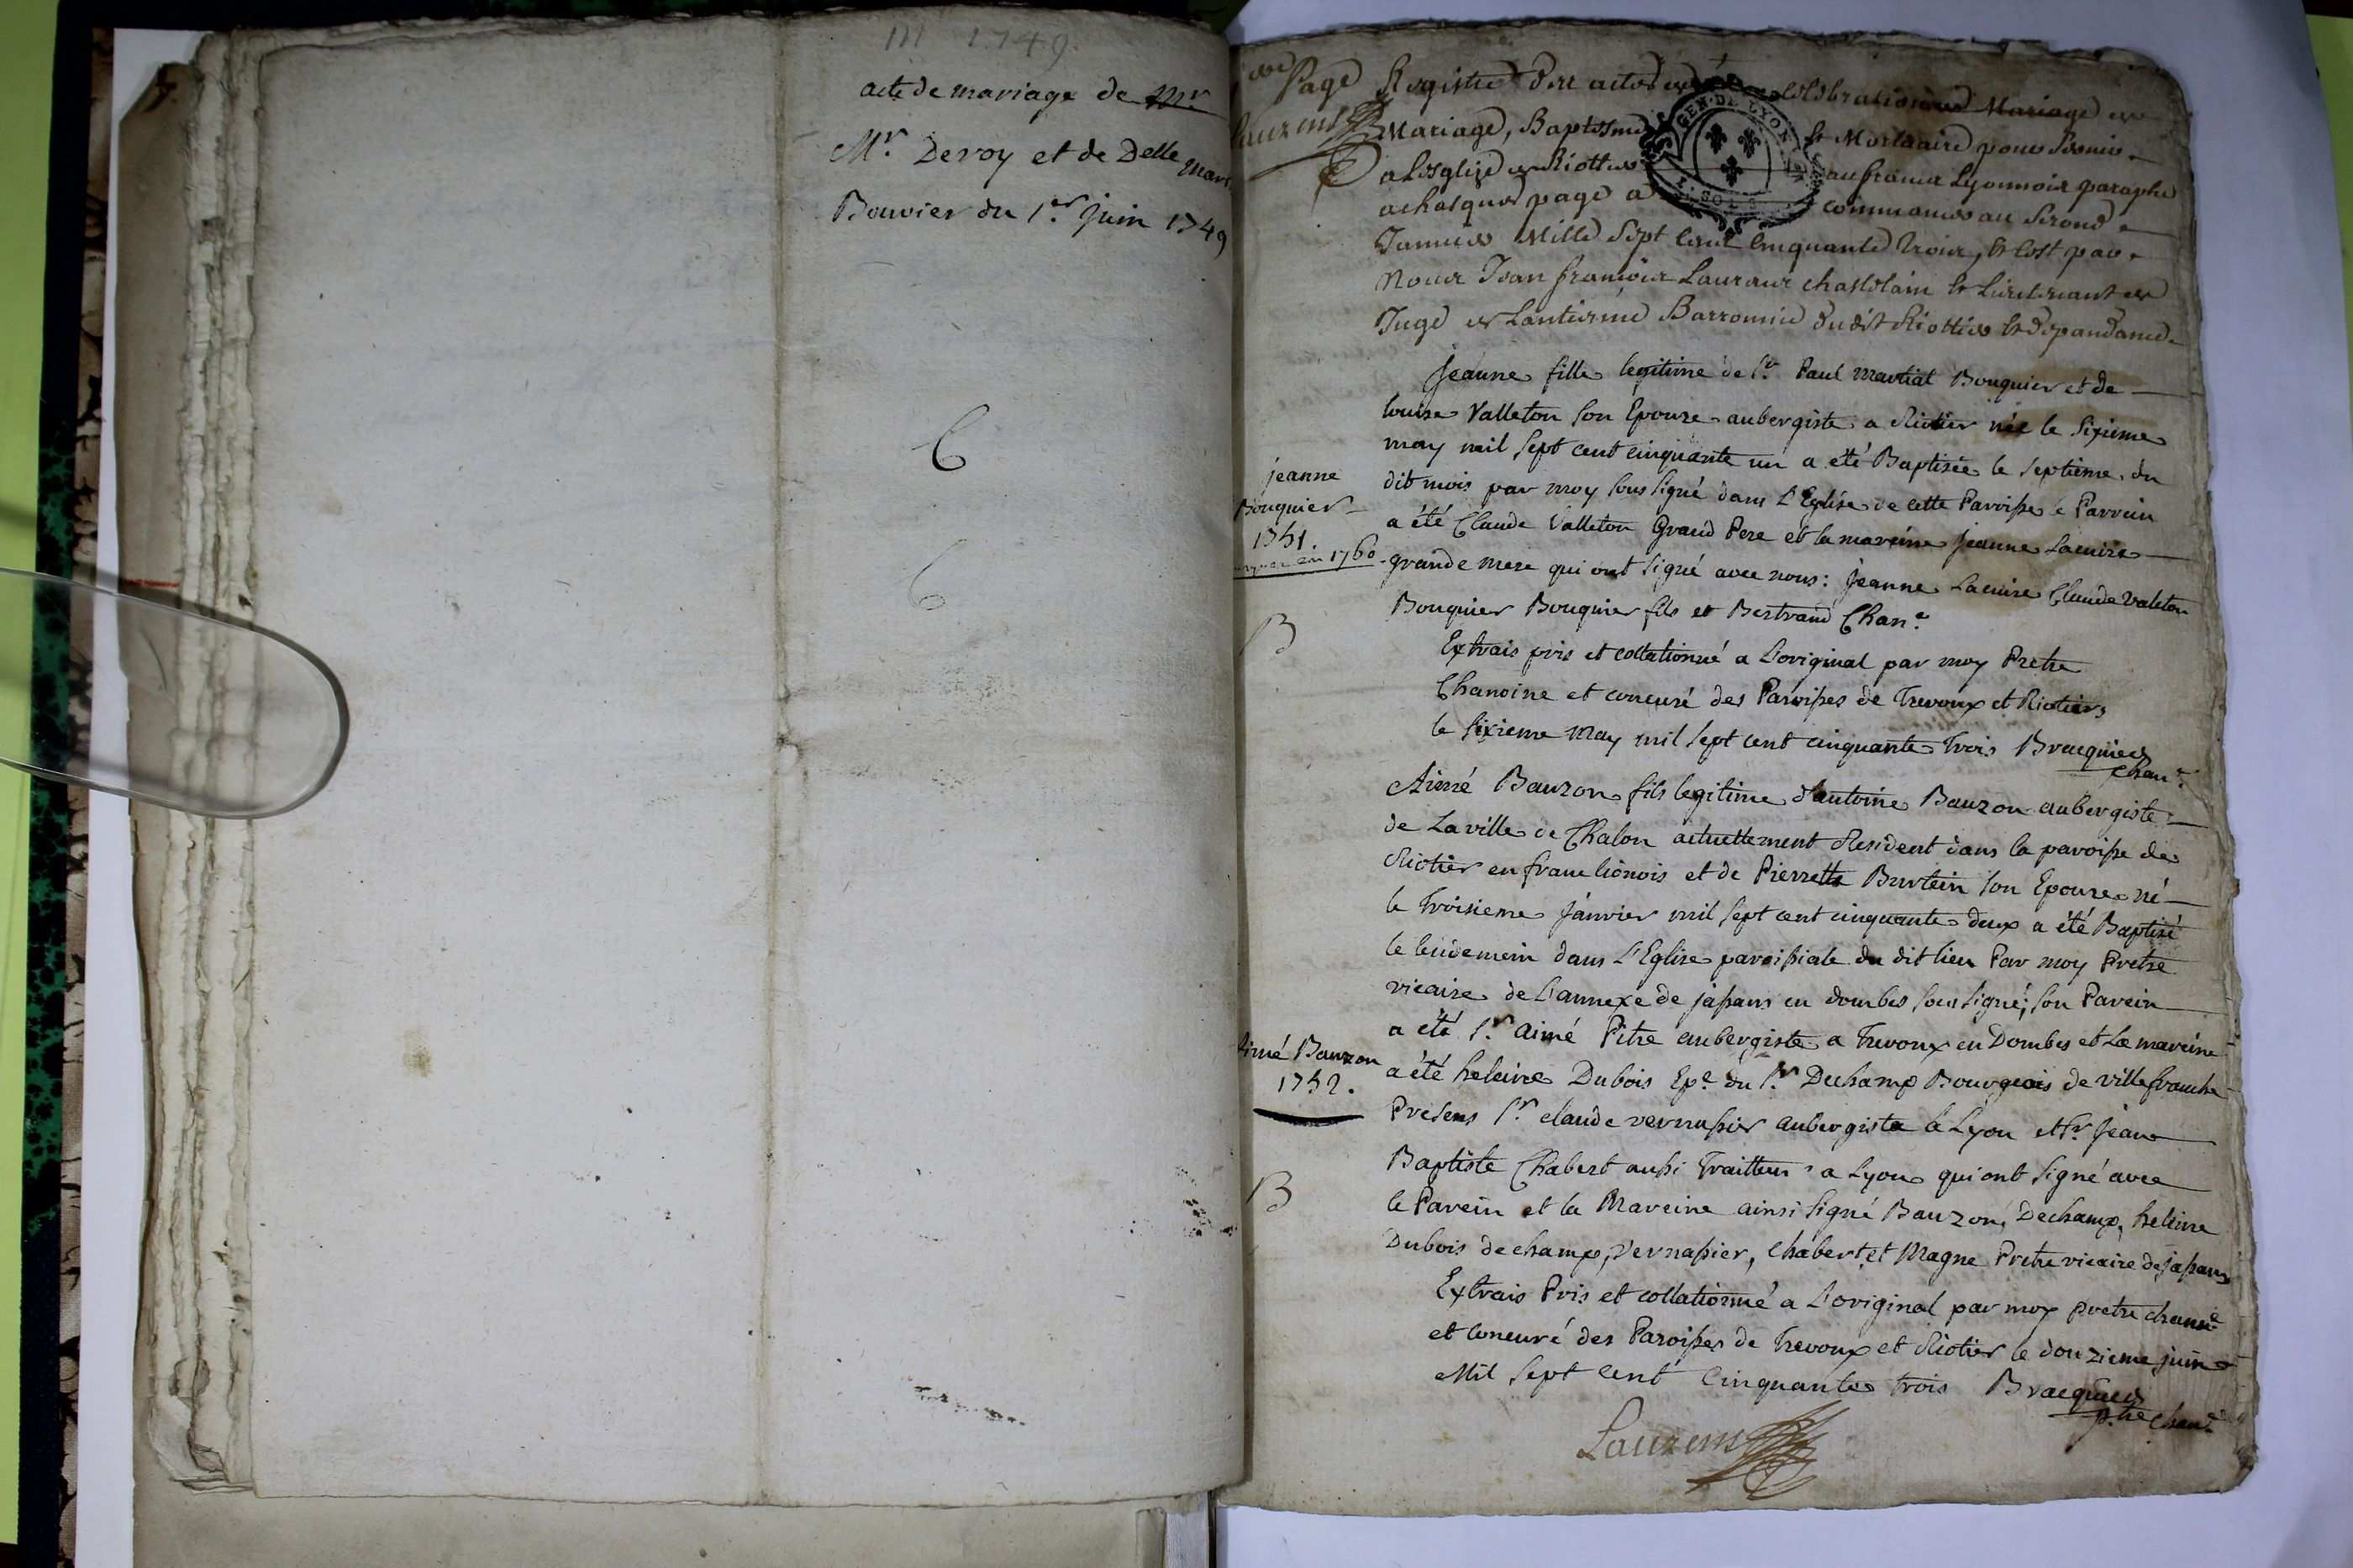 M 1749.
acte de mariage de Mr
Mr. Devoy et de Delle
Bouvier du 1.er juin 1749
Page
Laurens
Registre des actes de celebration de Mariage
Mariage, Baptesme et Mortuaire pour servir
a Lesglize de Riottier au franc Lyonnois paraphé
a chasque page commancé au segond
Janvier Mille Sept Cent Cinquante trois, et cest par
Nous Jean françois Laurans chastelain et Lieutenant de
Juge de Lantienne Barronnie dudit Riottier et despandance
GEN. DE LYON
SOLS
Jeanne fille legitime de Sr. Paul Martial Bouquier et de
louise Valleton son Epouse aubergiste a Riotier née le sixieme
may mil sept cent cinquante un a été Baptisée le septieme du
dit mois par moy sous signé dans L'Eglise de cette Paroisse le Parrein
a été Claude Valleton Grand Pere et la mareine Jeanne Lacuire
grande mere qui ont signé avec nous: Jeanne Lacuire Claude Valeton
Bouquier Bouquier fils et Bertrand Chan.e
jeanne
Bouquier
1751.
en 1760
B
Extrais pris et collationné a L'original par moy Pretre
Chanoine et concuré des Paroisses de Trevoux et Riotiers
le sixieme May mil sept cent cinquante trois Bracquied
chan.e
Aimé Bauzon fils legitime d'antoine Bauzon aubergiste
de La ville de Chalon actuellement Resident dans la paroisse de
Riotier en franc lionois et de Pierrette Burtein son Epouse né
le troisieme janvier mil sept cent cinquante deux a été Baptisé
le lendemein dans L'Eglise paroissiale du dit lieu Par moy Pretre
vicaire de L'annexe de jassans en dombes sous signé; son Parein
a été Sr. aimé Pitre aubergiste a Trevoux en Dombes et La mareine
a été heleine Dubois Ep.e du Sr. Dechamp Bourgeois de villefranche
Presens Sr. claude vernassier aubergiste a Lyon et Sr. Jean
Baptiste Chabert aussi Traitteur a Lyon qui ont signé avec
le Parein et la Mareine ainsi signé Bauzon, Dechamp, heleine
Dubois dechamp, vernassier, Chabert, et Magne Pretre vicaire de jassans
aimé Bauzon
1752.
B
Extrais Pris et collationné a L'original par moy pretre chanoine
et Concuré des Paroisses de Trevoux et Riotier le douzieme juin
Mil sept cent Cinquante trois Bracquied
p.tre chan.e
Laurens